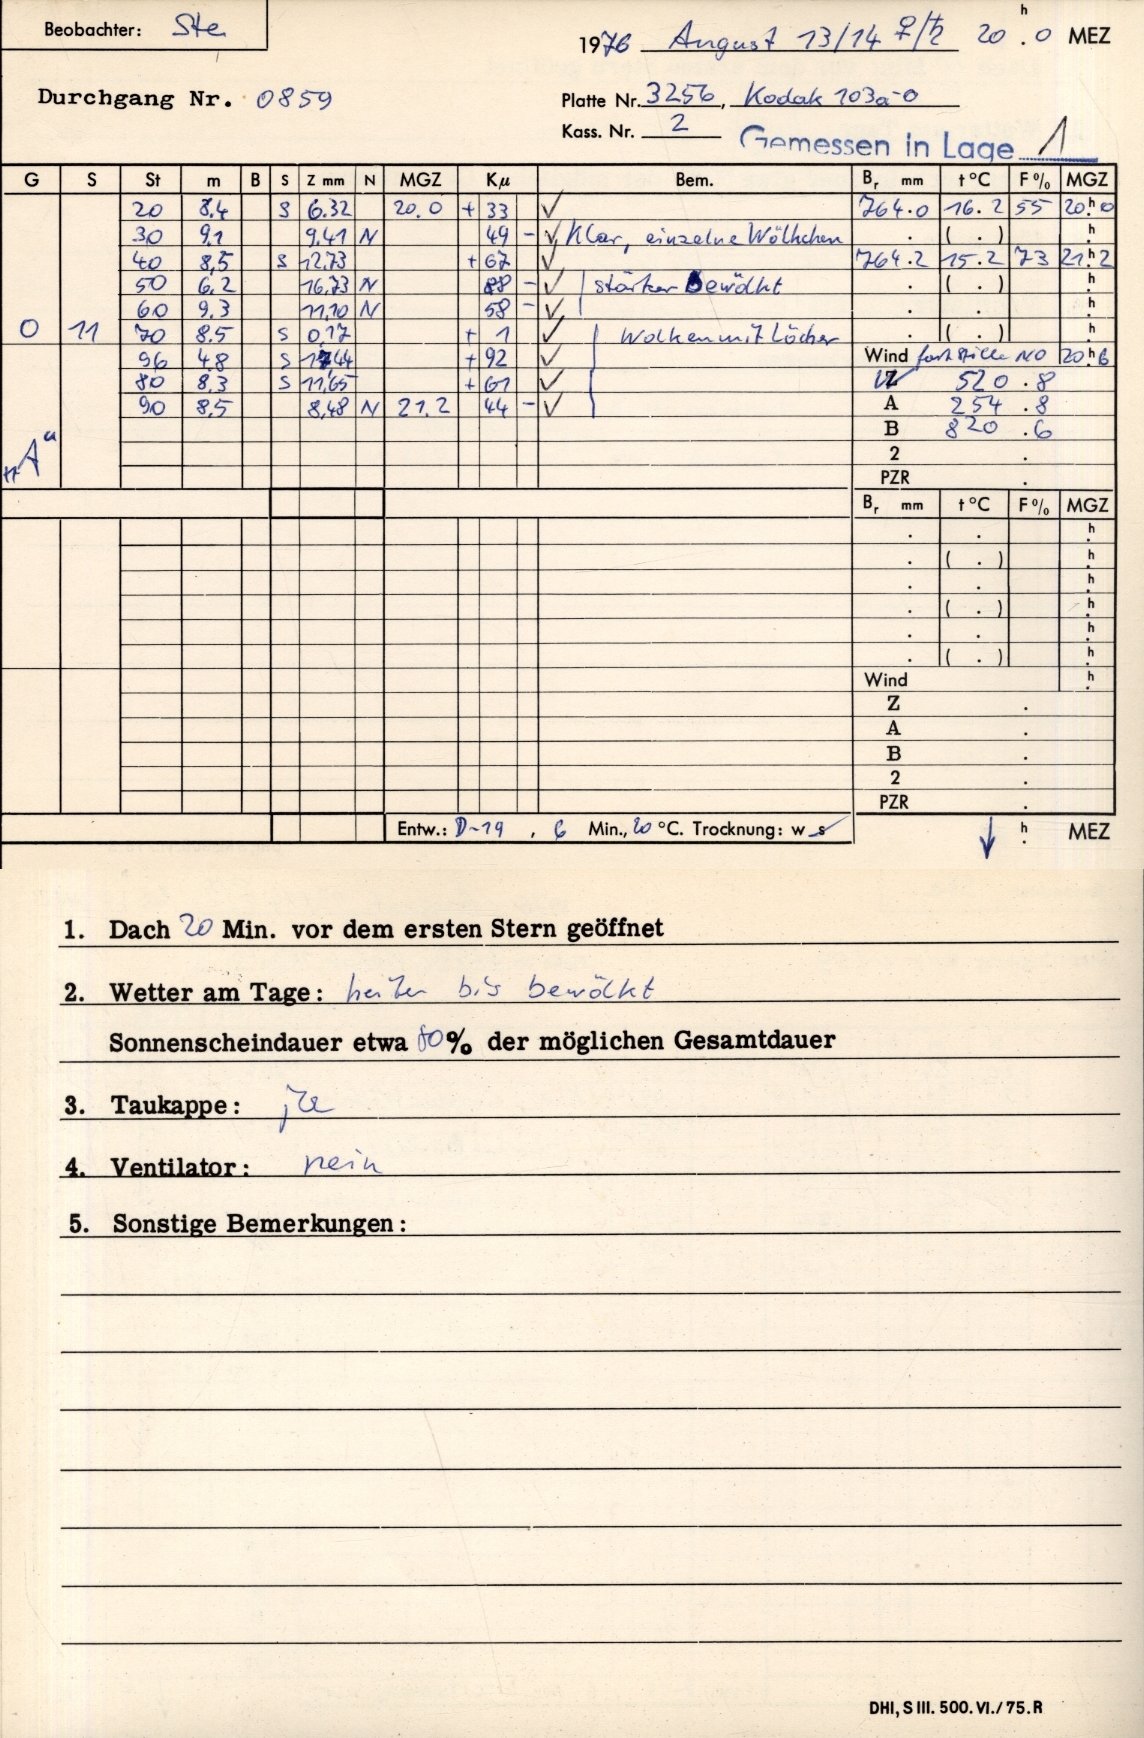 Beobachter: Ste
1976 August 13/14 ♀/♄ 20 h . 0 MEZ
Durchgang Nr. 0859
Platte Nr. 3256, Kodak 103a-O
Kass. Nr. 2
Gemessen in Lage 1
G S St m B S Z mm N MGZ Kμ Bem. Br mm t °C F % MGZ
20 8.4 S 6.32 20.0 + 33 ✓ 764.0 16.2 55 20 h 0
30 9.1 9.41 N 49 - ✓ Klar, einzelne Wölkchen . ( . ) h .
40 8,5 S 12.73 + 67 ✓ 764.2 15.2 73 21 h 2
50 6,2 16,73 N 88 - ✓ stärker bewölkt . ( . ) h .
60 9.3 11,10 N 58 - ✓ . . h .
0 11 70 8.5 S 0,17 + 1 ✓ Wolken mit Löcher . ( . ) h .
96 4.8 S 44 + 92 ✓ Wind fast stille NO 20 h 6
80 8,3 S 11,65 + 61 ✓ Z 520 . 8
90 8,5 8,48 N 21.2 44 - ✓ A 254 . 8
„A“ B 820 . 6
2 .
PZR .
Br mm t °C F % MGZ
. . h .
. ( . ) h .
. . h .
. ( . ) h .
. . h .
. ( . ) h .
Wind h .
Z .
A .
B .
2 .
PZR .
Entw.: D-19 , 6 Min., 20 °C. Trocknung: w s ↓ h . MEZ
1. Dach 20 Min. vor dem ersten Stern geöffnet
2. Wetter am Tage: heiter bis bewölkt
Sonnenscheindauer etwa 80% der möglichen Gesamtdauer
3. Taukappe: ja
4. Ventilator: nein
5. Sonstige Bemerkungen:
DHI, S III. 500. VI./75. R